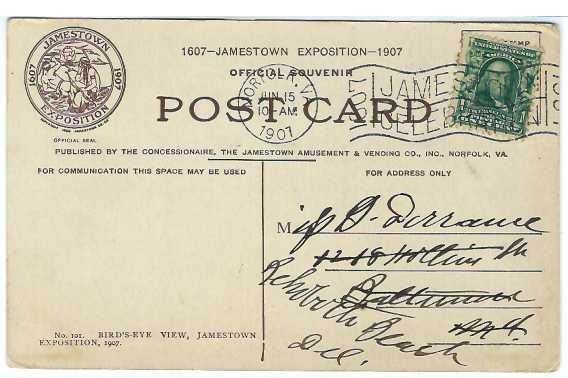 JAMESTOWN
1607 1907
EXPOSITION
OFFICIAL SEAL
1607—JAMESTOWN EXPOSITION—1907
OFFICIAL SOUVENIR
POST CARD
NORFOLK, VA.
JUN 15
10-AM
1907
JAMESTOWN
PUBLISHED BY THE CONCESSIONAIRE, THE JAMESTOWN AMUSEMENT & VENDING CO., INC., NORFOLK, VA.
FOR COMMUNICATION THIS SPACE MAY BE USED
FOR ADDRESS ONLY
Miss D. Dorrance
1218 Hollins St
Baltimore
Md.
Rehoboth Beach
Del.
No. 101. BIRD'S-EYE VIEW, JAMESTOWN
EXPOSITION, 1907.